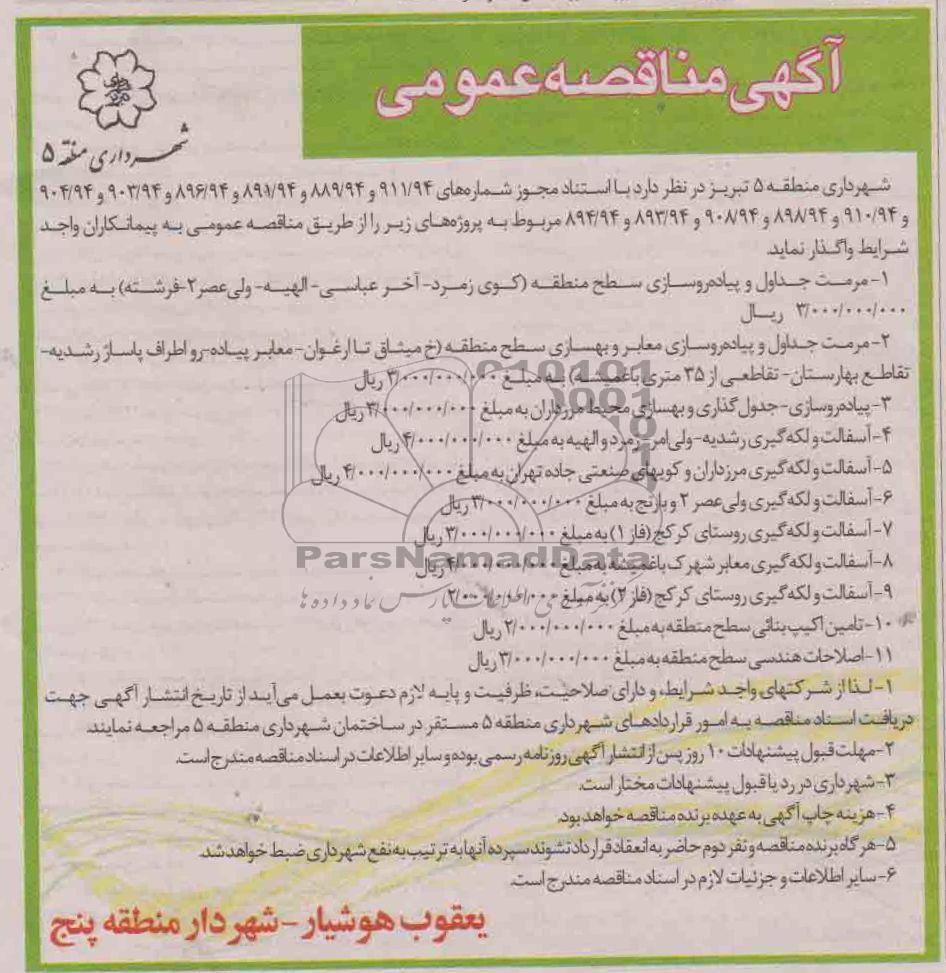 آگهی مناقصه عمومی
شهرداری منطقه ۵
شهرداری منطقه ۵ تبریز در نظر دارد با استناد مجوز شماره‌های ۹۱۱/۹۴ و ۸۸۹/۹۴ و ۸۹۱/۹۴ و ۸۹۶/۹۴ و ۹۰۳/۹۴ و ۹۰۴/۹۴
و ۹۱۰/۹۴ و ۸۹۸/۹۴ و ۹۰۸/۹۴ و ۸۹۳/۹۴ و ۸۹۴/۹۴ مربوط به پروژه‌های زیر را از طریق مناقصه عمومی به پیمانکاران واجد
شرایط واگذار نماید.
۱-مرمت جداول و پیاده‌روسازی سطح منطقه (کوی زمرد- آخر عباسی- الهیه- ولی‌عصر۲-فرشته) به مبلغ
۳/۰۰۰/۰۰۰/۰۰۰ ریال
۲-مرمت جداول و پیاده‌روسازی معابر و بهسازی سطح منطقه (خ میثاق تا ارغوان- معابر پیاده-رو اطراف پاساژ رشدیه-
تقاطع بهارستان- تقاطعی از ۳۵ متری باغمیشه) به مبلغ ۳/۰۰۰/۰۰۰/۰۰۰ ریال
۳-پیاده‌روسازی-جدول گذاری و بهسازی محیط مرزداران به مبلغ ۳/۰۰۰/۰۰۰/۰۰۰ ریال
۴-آسفالت و لکه‌گیری رشدیه-ولی‌امر-زمرد و الهیه به مبلغ ۴/۰۰۰/۰۰۰/۰۰۰ ریال
۵-آسفالت و لکه‌گیری مرزداران و کویهای صنعتی جاده تهران به مبلغ ۴/۰۰۰/۰۰۰/۰۰۰ ریال
۶-آسفالت و لکه‌گیری ولی‌عصر ۲ و بارنج به مبلغ ۳/۰۰۰/۰۰۰/۰۰۰ ریال
۷-آسفالت و لکه‌گیری روستای کرکج (فاز ۱) به مبلغ ۳/۰۰۰/۰۰۰/۰۰۰ ریال
۸-آسفالت و لکه‌گیری معابر شهرک باغمیشه به مبلغ ۴/۰۰۰/۰۰۰/۰۰۰ ریال
ParsNamadData
۹-آسفالت و لکه‌گیری روستای کرکج (فاز ۲) به مبلغ ۲/۰۰۰/۰۰۰/۰۰۰
۱۰-تامین اکیپ بنائی سطح منطقه به مبلغ ۲/۰۰۰/۰۰۰/۰۰۰ ریال
۱۱-اصلاحات هندسی سطح منطقه به مبلغ ۳/۰۰۰/۰۰۰/۰۰۰ ریال
۱-لذا از شرکتهای واجد شرایط، و دارای صلاحیت، ظرفیت و پایه لازم دعوت بعمل می‌آید از تاریخ انتشار آگهی جهت
دریافت اسناد مناقصه به امور قراردادهای شهرداری منطقه ۵ مستقر در ساختمان شهرداری منطقه ۵ مراجعه نمایند.
۲-مهلت قبول پیشنهادات ۱۰ روز پس از انتشار آگهی روزنامه رسمی بوده و سایر اطلاعات در اسناد مناقصه مندرج است.
۳-شهرداری در رد یا قبول پیشنهادات مختار است.
۴-هزینه چاپ آگهی به عهده برنده مناقصه خواهد بود.
۵-هر گاه برنده مناقصه و نفر دوم حاضر به انعقاد قرارداد نشوند سپرده آنها به ترتیب به نفع شهرداری ضبط خواهد شد.
۶-سایر اطلاعات و جزئیات لازم در اسناد مناقصه مندرج است.
یعقوب هوشیار-شهردار منطقه پنج